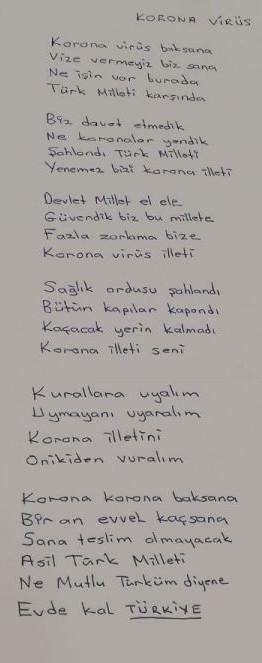 KORONA VİRÜS
Korona virüs baksana
Vize vermeyiz biz sana
Ne işin var burada
Türk Milleti karşında
Biz davet etmedik
Ne koronalar yendik
Şahlandı Türk Milleti
Yenemez bizi korona illeti
Devlet Millet el ele
Güvendik biz bu millete
Fazla zorlama bize
Korona virüs illeti
Sağlık ordusu şahlandı
Bütün kapılar kapandı
Kaçacak yerin kalmadı
Korona illeti seni
Kurallara uyalım
Uymayanı uyaralım
Korona illetini
Onikiden vuralım
Korona korona baksana
Bir an evvel kaçsana
Sana teslim olmayacak
Asil Türk Milleti
Ne Mutlu Türküm diyene
Evde kal TÜRKİYE